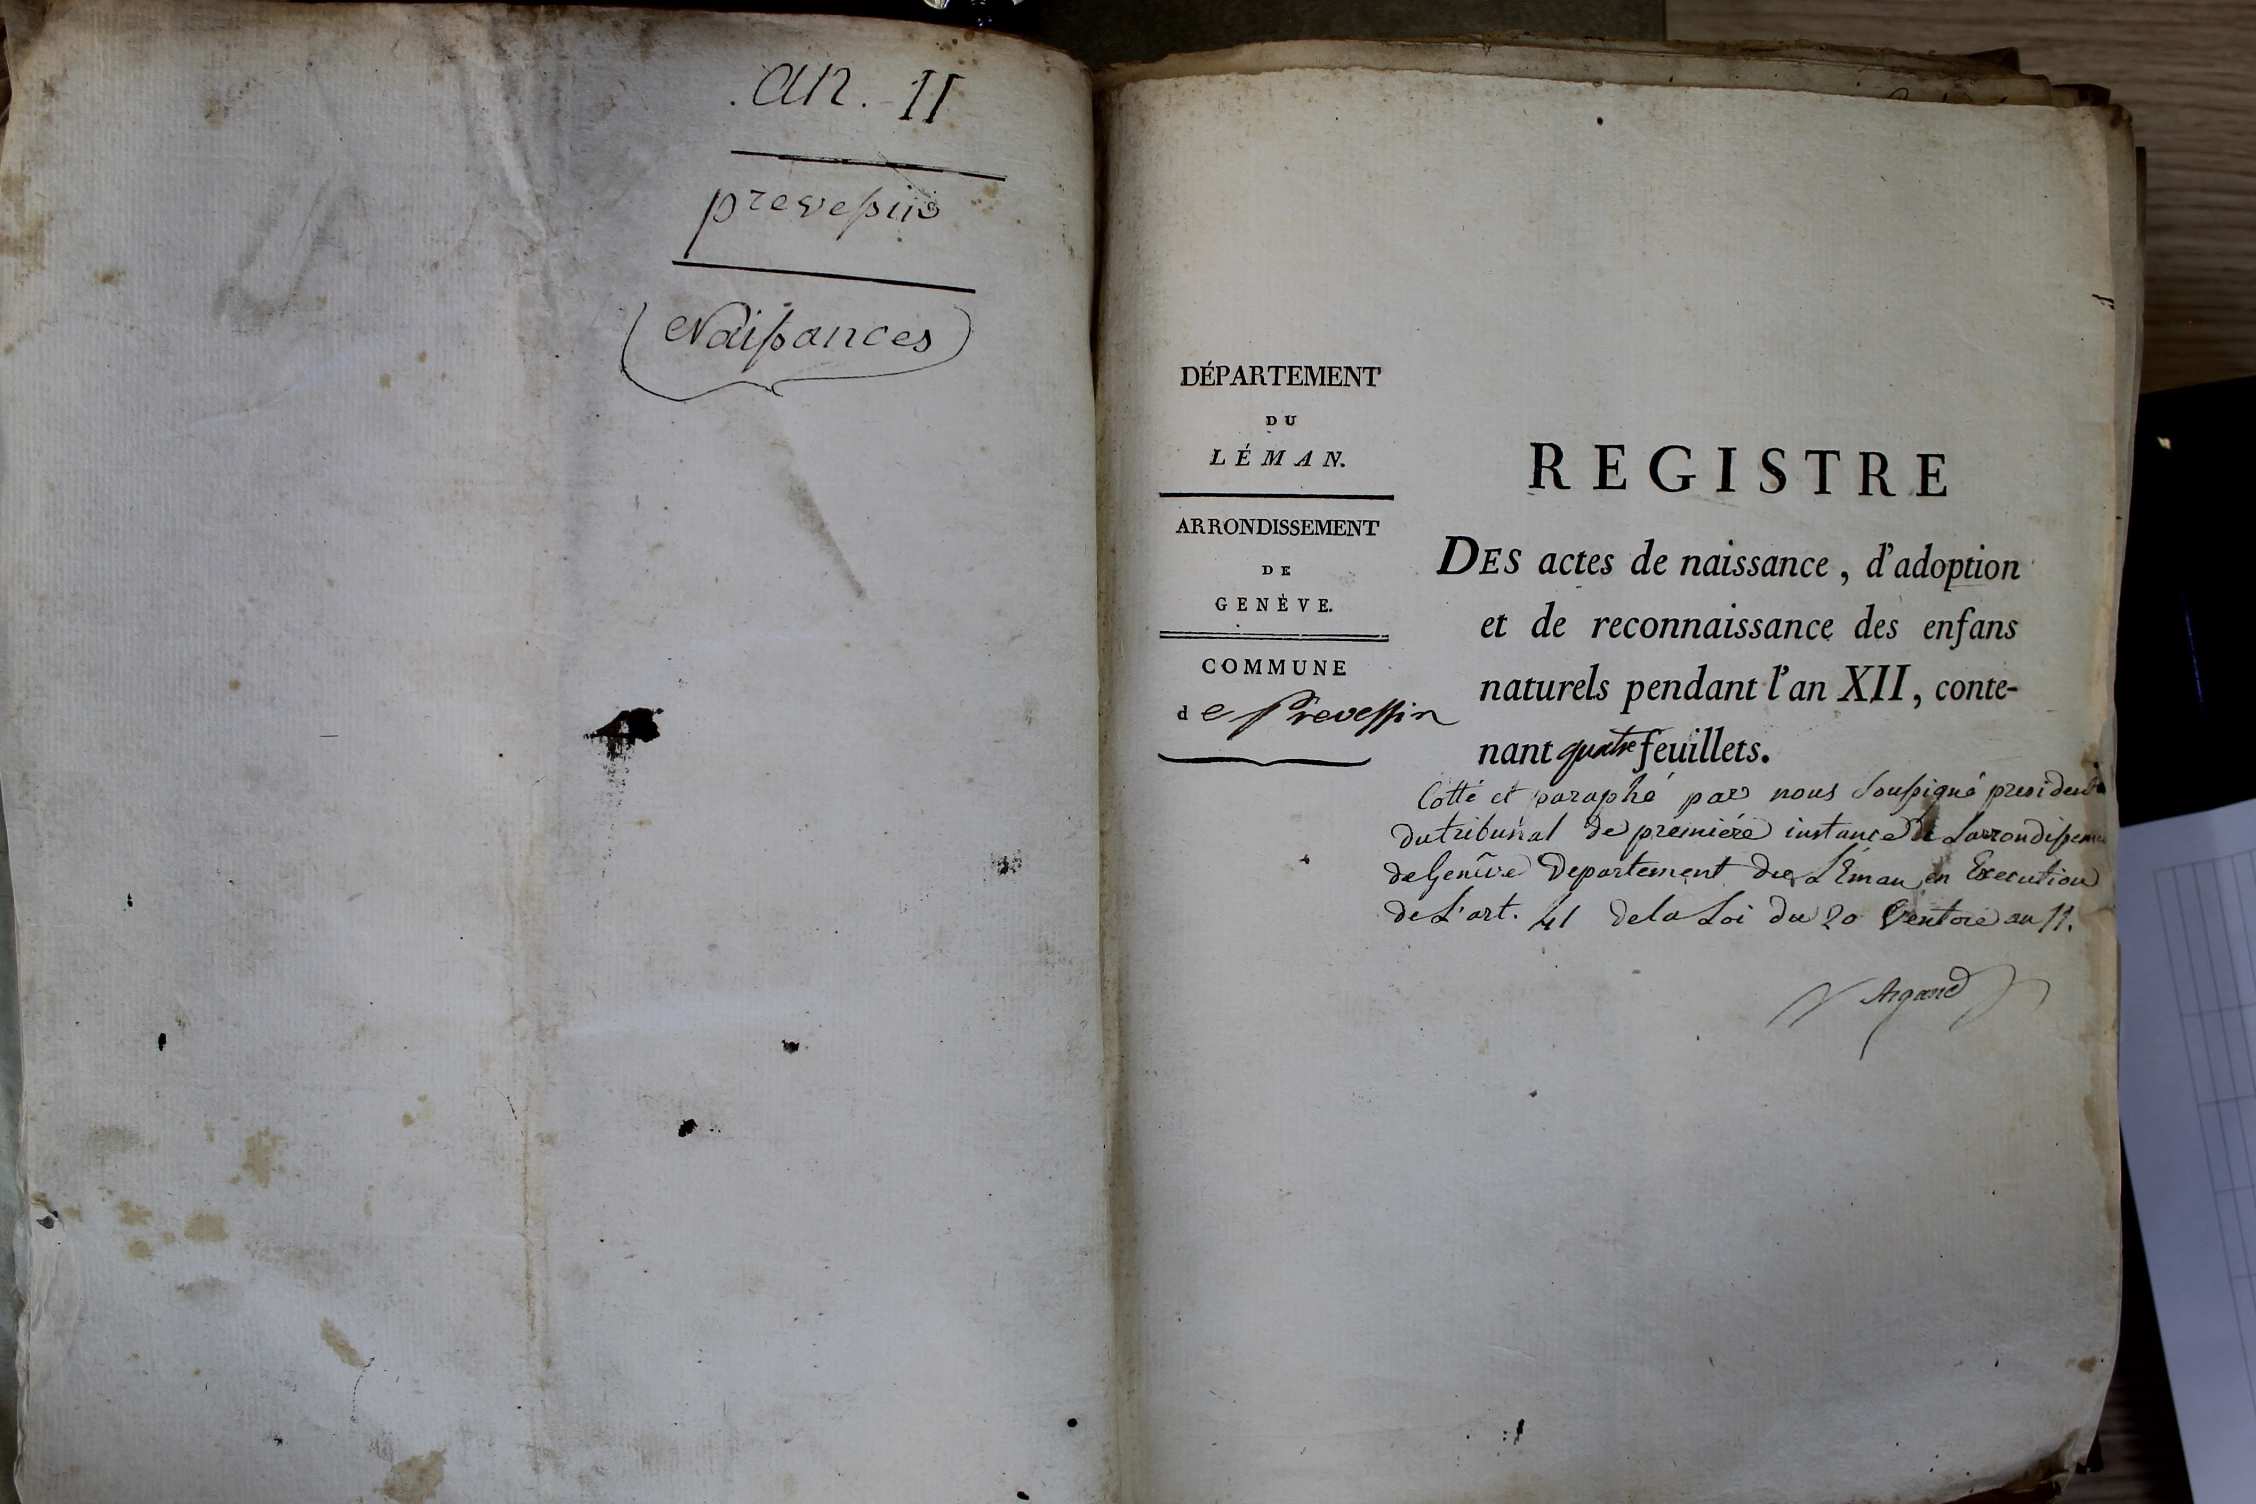 .an. 11
prevessin
Naissances
DÉPARTEMENT
DU
LÉMAN.
ARRONDISSEMENT
DE
GENÈVE.
COMMUNE
de Prevessin
REGISTRE
DES actes de naissance, d'adoption
et de reconnaissance des enfans
naturels pendant l'an XII, conte-
nant quatre feuillets.
Cotté et paraphé par nous Soussigné president
du tribunal de premiére instance de Larrondisseme
de Genève Departement du LEman en Execution
de L'art. 41 de la Loi du 20 Ventose an 11.
Argand